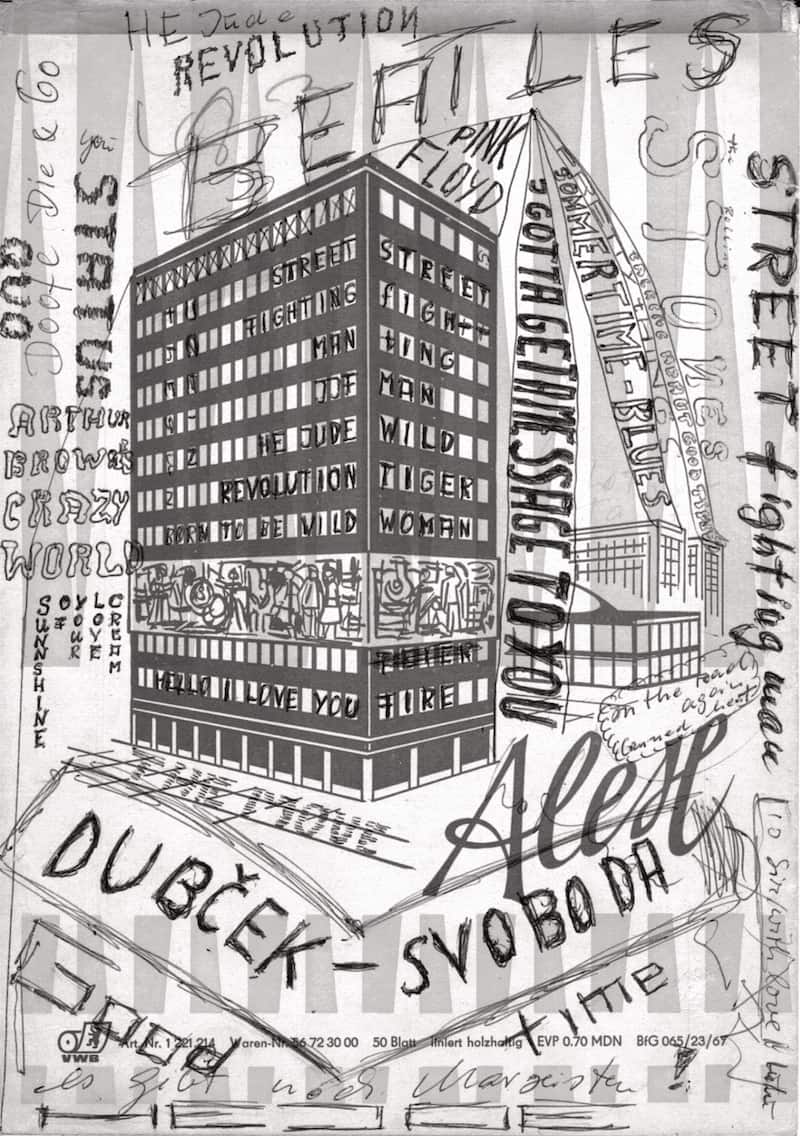 HE Jude
REVOLUTION
BEATLES
PINK
FLOYD
Doofe Die & Go
you
STATUS
QUO
ARTHUR
BROWN'S
CRAZY
WORLD
CREAM
LOVE
YOUR
OF
SUNNSHINE
STREET
FIGHTING
MAN
HE JUDE
REVOLUTION
BORN TO BE WILD
STREET
FIGHT
TING
MAN
WILD
TIGER
WOMAN
HELLO I LOVE YOU
FIRE
I GOTTA GET A MESSAGE TO YOU
SOMMERTIME-BLUES
the Rolling
STONES
STREET fighting man
on the road
again
canned heat
THE MOVE
Alex
DUBČEK – SVOBODA
GOOD time
to Sir, with love
Art.-Nr. 1 221 214 Waren-Nr. 56 72 30 00 50 Blatt liniert holzhaltig EVP 0.70 MDN BfG 065/23/67
VWB
es gibt noch Marxisten!